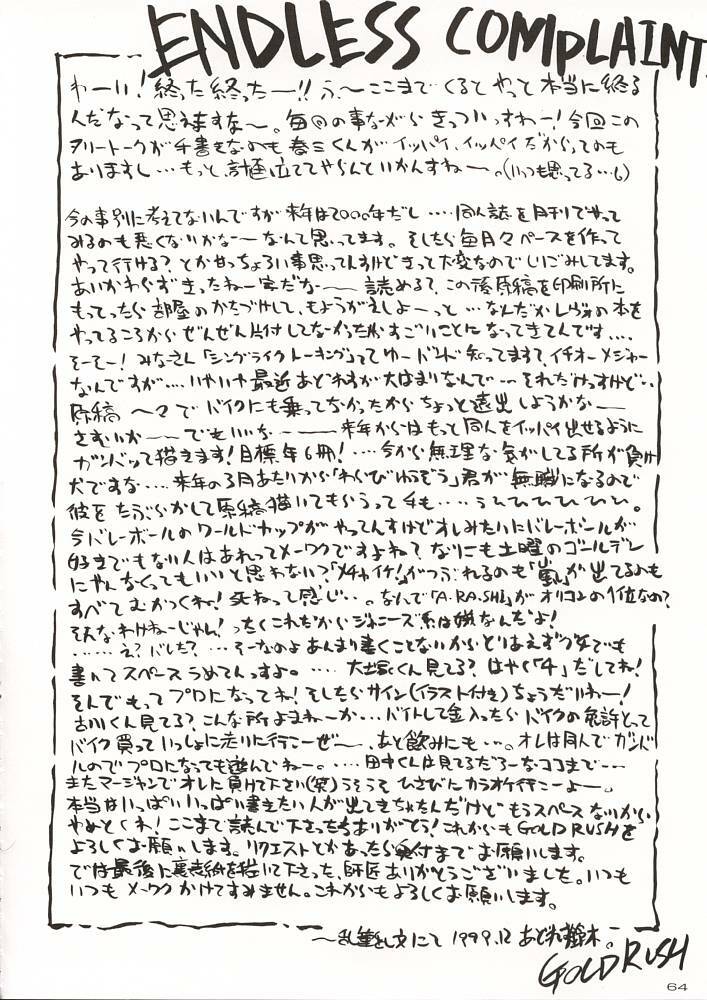 ENDLESS COMPLAINT.
わーい!終った終ったー!!ふ〜ここまでくるとやっと本当に終る
んだなって思えますな〜。毎回の事ながらきっついっすわー!今回この
フリートークが手書きなのも春三くんがイッパイ、イッパイだからってのも
ありますし…もっと計画立ててやらんといかんすねー。(いつも思ってる…)
今の事別に考えてないんですが来年は2000年だし‥‥同人誌を月刊でやって
みるのも悪くないかなーなんて思ってます。そしたら毎月々ペースを作って
やって行ける?とかせっちょろい事思ってんすけどきっと大変なのでしりごみしてます。
あいかわらずきったねー字だなー 読めるて?この後原稿を印刷所に
もってったら部屋のかたづけして、もようがえしよーっと…なんだかレヴォの本を
やってるころからぜんぜん片付してなかったからすごいことになってきてんです‥‥
そーそー!みなさん「シングライクトーキング」ってゆーバンド知ってます?イチオーメジャー
なんですが‥‥いやいや最近あどれすが大はまりなんで…それだけっすけど‥
原稿 〜々でバイクにも乗ってなかったからちょっと遠出しようかなー
さむいかー でもいいなー 来年からはもっと同人をイッパイ出せるように
ガンバッて描きます!目標年6冊!‥‥今から無理な気がしてる所が負け
犬ですな‥‥来年の3月あたりから「わらびゆうぞう」君が無職になるので
彼をたぶらかして原稿描いてもらうって手も‥‥うひひひひひひ。
今バレーボールのワールドカップがやってんすけどオレみたいにバレーボールが
好きでもない人はあれってメーワクですよね?なにも土曜のゴールデン
にやんなくってもいいと思わない?「メチャイケ!」がつぶれるのも「嵐」が出てるのも
すべてむかつくね!死ねって感じ‥。なんで「A・RA・SHI」がオリコンの1位なの?
そんなわけねーじゃん!ったくこれだからジャニーズ系は嫌なんだよ!
‥‥‥え?バレた?‥‥そーなのよあんまり書くことないからとりあえずウソでも
書いてスペースうめてんっすよ。‥‥大塚くん見てる?はやく「4」だしてね!
そんでもってプロになってね!そしたらサイン(イラスト付き)ちょうだいねー!
古川くん見てる?こんな所よまねーか‥‥バイトして金入ったらバイクの免許とって
バイク買っていっしょに走りに行こーぜー、あと飲みにも…。オレは同人でガンバ
ルのでプロになっても遊んでねー。‥‥田中くんは見てるだろーなココまで…
またマージャンでオレに負けて下さい(笑)うそうそ ひさびにカラオケ行こーよー。
本当はいっぱいいっぱい書きたい人が出てきちゃたんだけどもうスペースないから
やめとくネ!ここまで読んで下さった方ありがとう!これからもGOLD RUSHを
よろしくお願いします。リクエストとかあったら奥付までお願いします。
では最後に裏表紙を描いて下さった、師匠ありがとうございました。いつも
いつもメーワクかけてすみません。これからもよろしくお願いします。
〜乱筆乱文にて 1999.12 あどれす鈴木。
GOLD RUSH
64